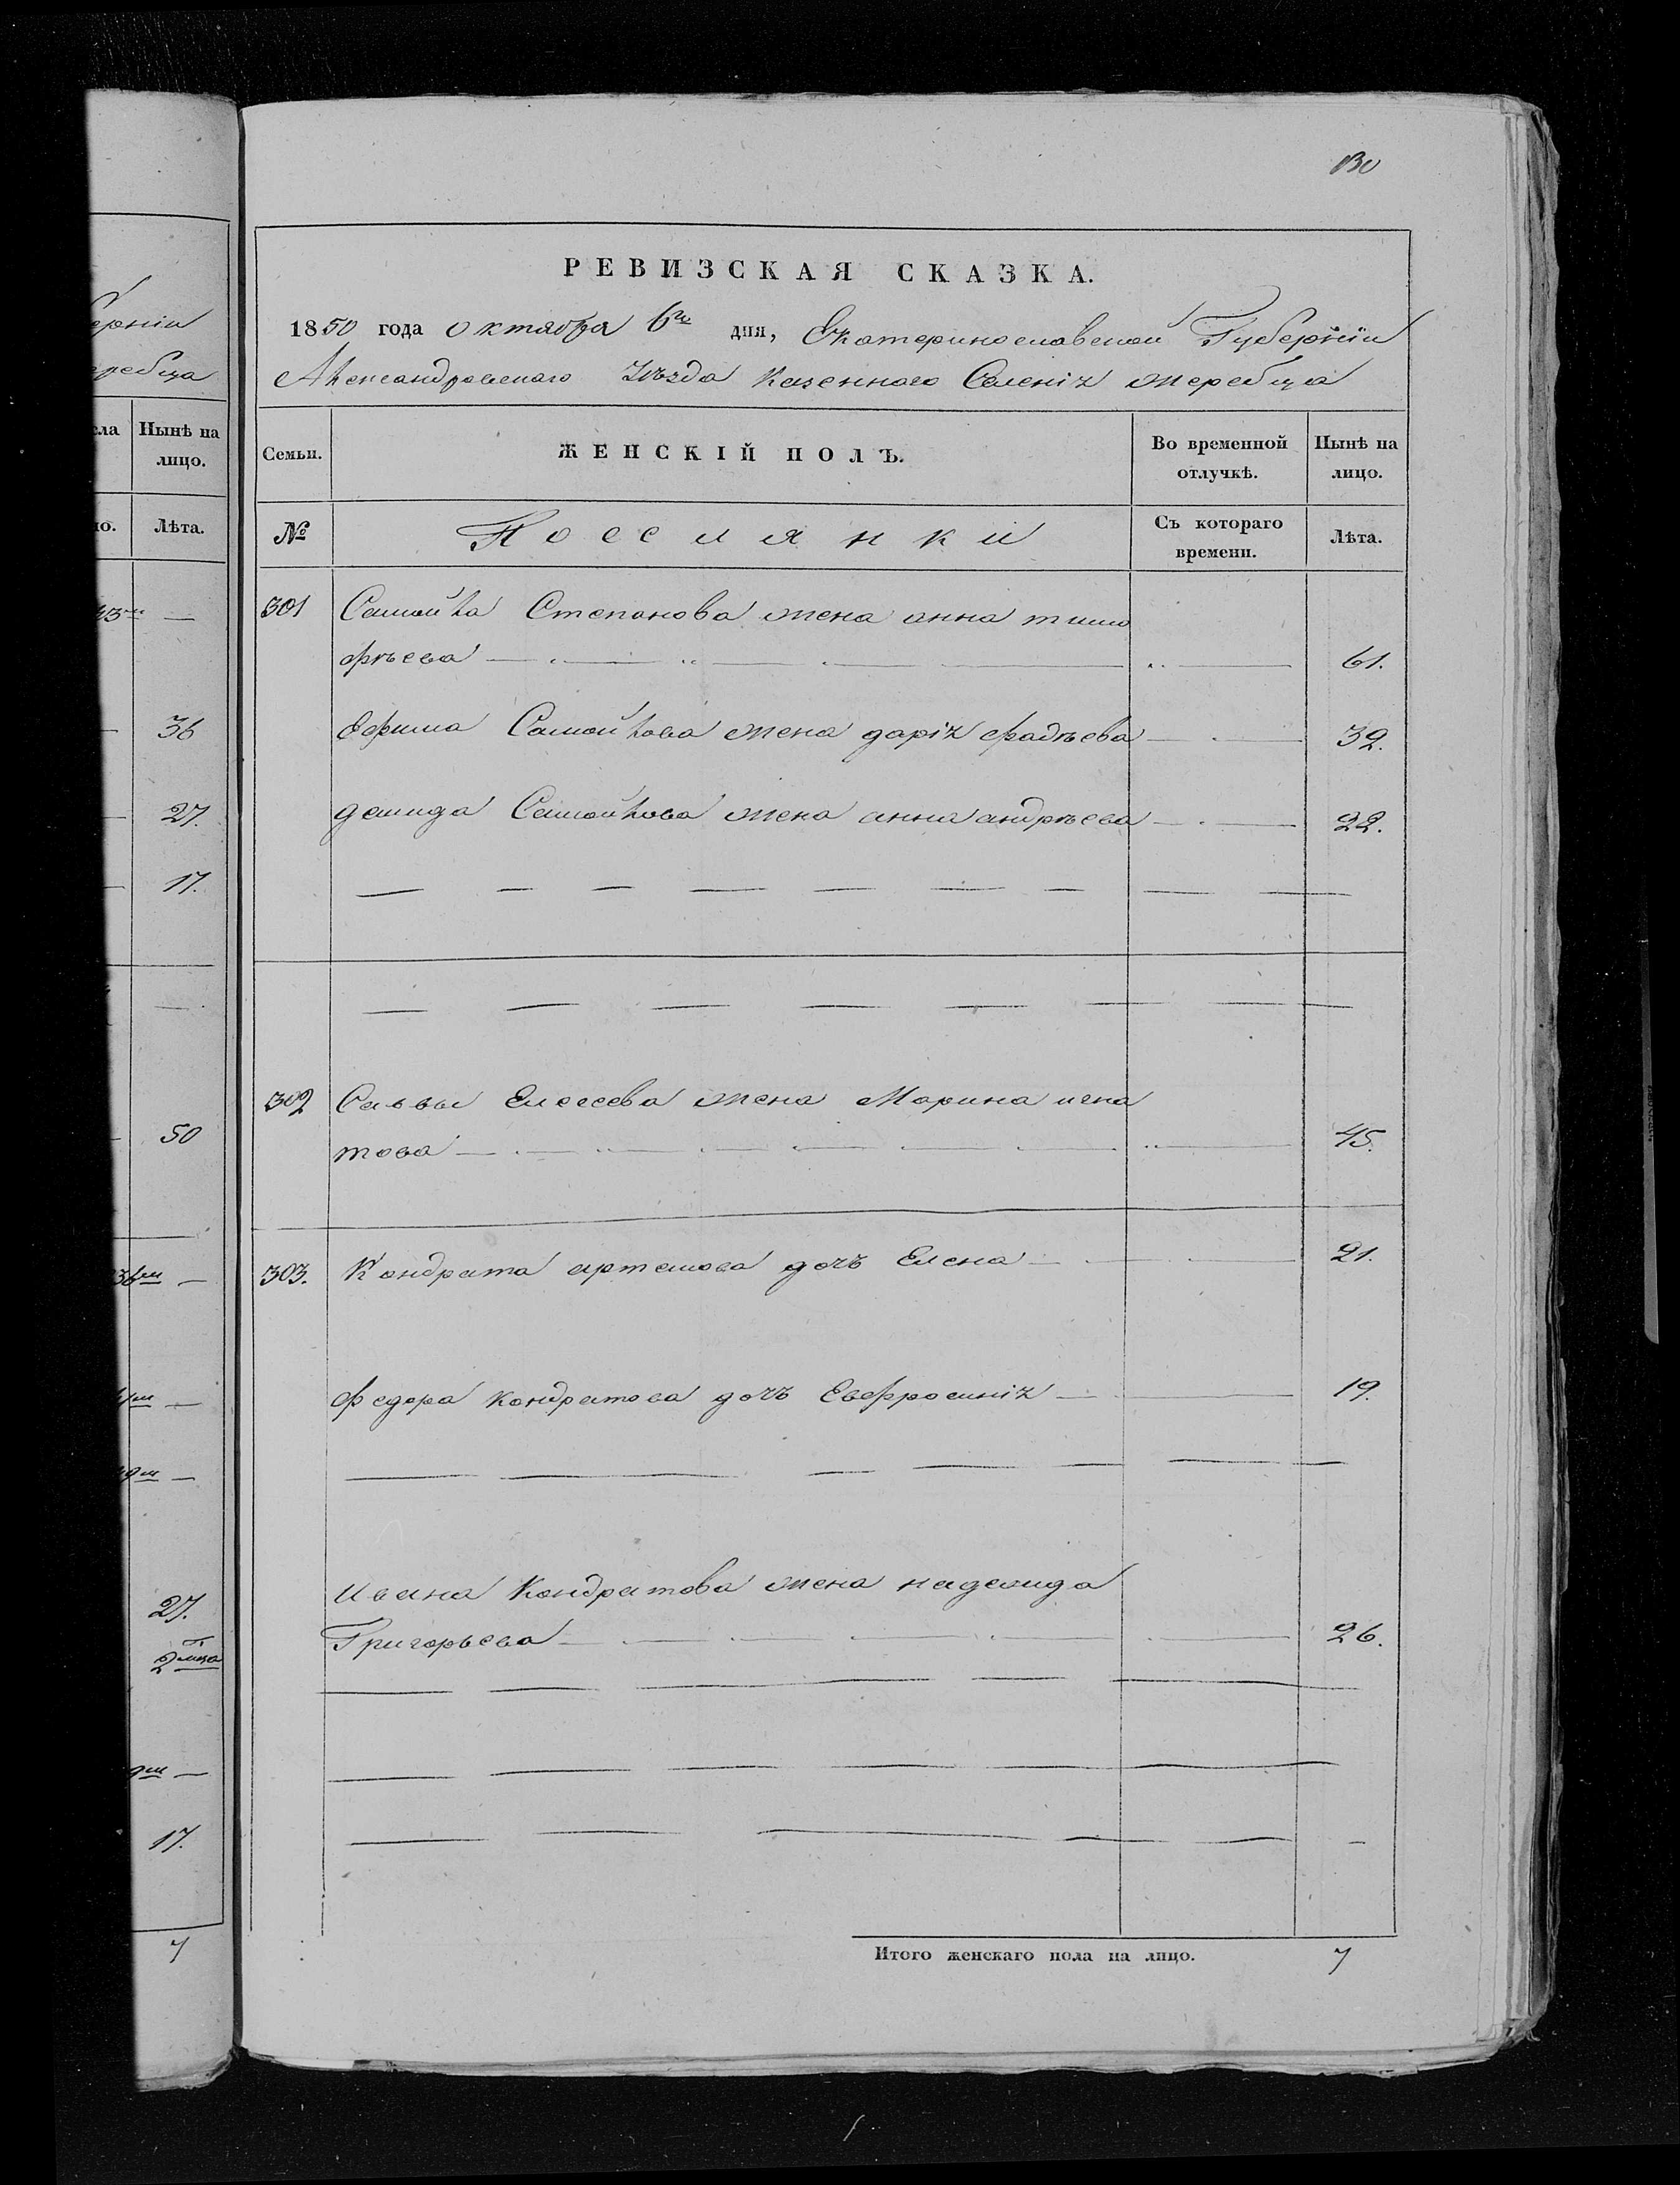 130
РЕВИЗСКАЯ СКАЗКА.
1850 года октября 6го дня, Екатеринославской Губерніи
Александровскаго уѣзда казеннаго Селенія жеребца
Семьи.
ЖЕНСКІЙ ПОЛЪ.
Во временной отлучкѣ.
Нынѣ на лицо.
№
Поселянки
Съ котораго времени.
Лѣта.
301 Самойла Степанова жена анна тимо
фѣева 61.
Ефима Самойлова жена дарія фадѣева 32.
демида Самойлова жена анна андрѣева 22.
302 Саввы Елесева жена Марина игна
това 45.
303. Кондрата артемова дочь Елена 21.
федора кондратова дочь Евфросинія 19.
Ивана Кондратова жена надежда
Григорьева 26.
Итого женскаго пола на лицо. 7
ерніи
еребца
сла
Нынѣ на
лицо.
но.
Лѣта.
43
36
27.
17.
50
27.
2 мца
17.
7